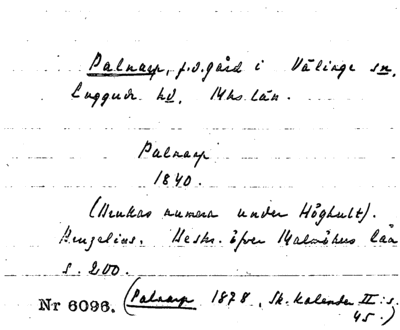 Palnarp, f.d. gård i Välinge sn,
Luggude hd, Mhs län.
Palnarp
1840.
(Brukas numera under Höghult).
Bruzelius. Beskr. öfver Malmöhus län
s. 200.
Nr 6096. (Palnarp 1878, Sk. kalender II: s.
45.)